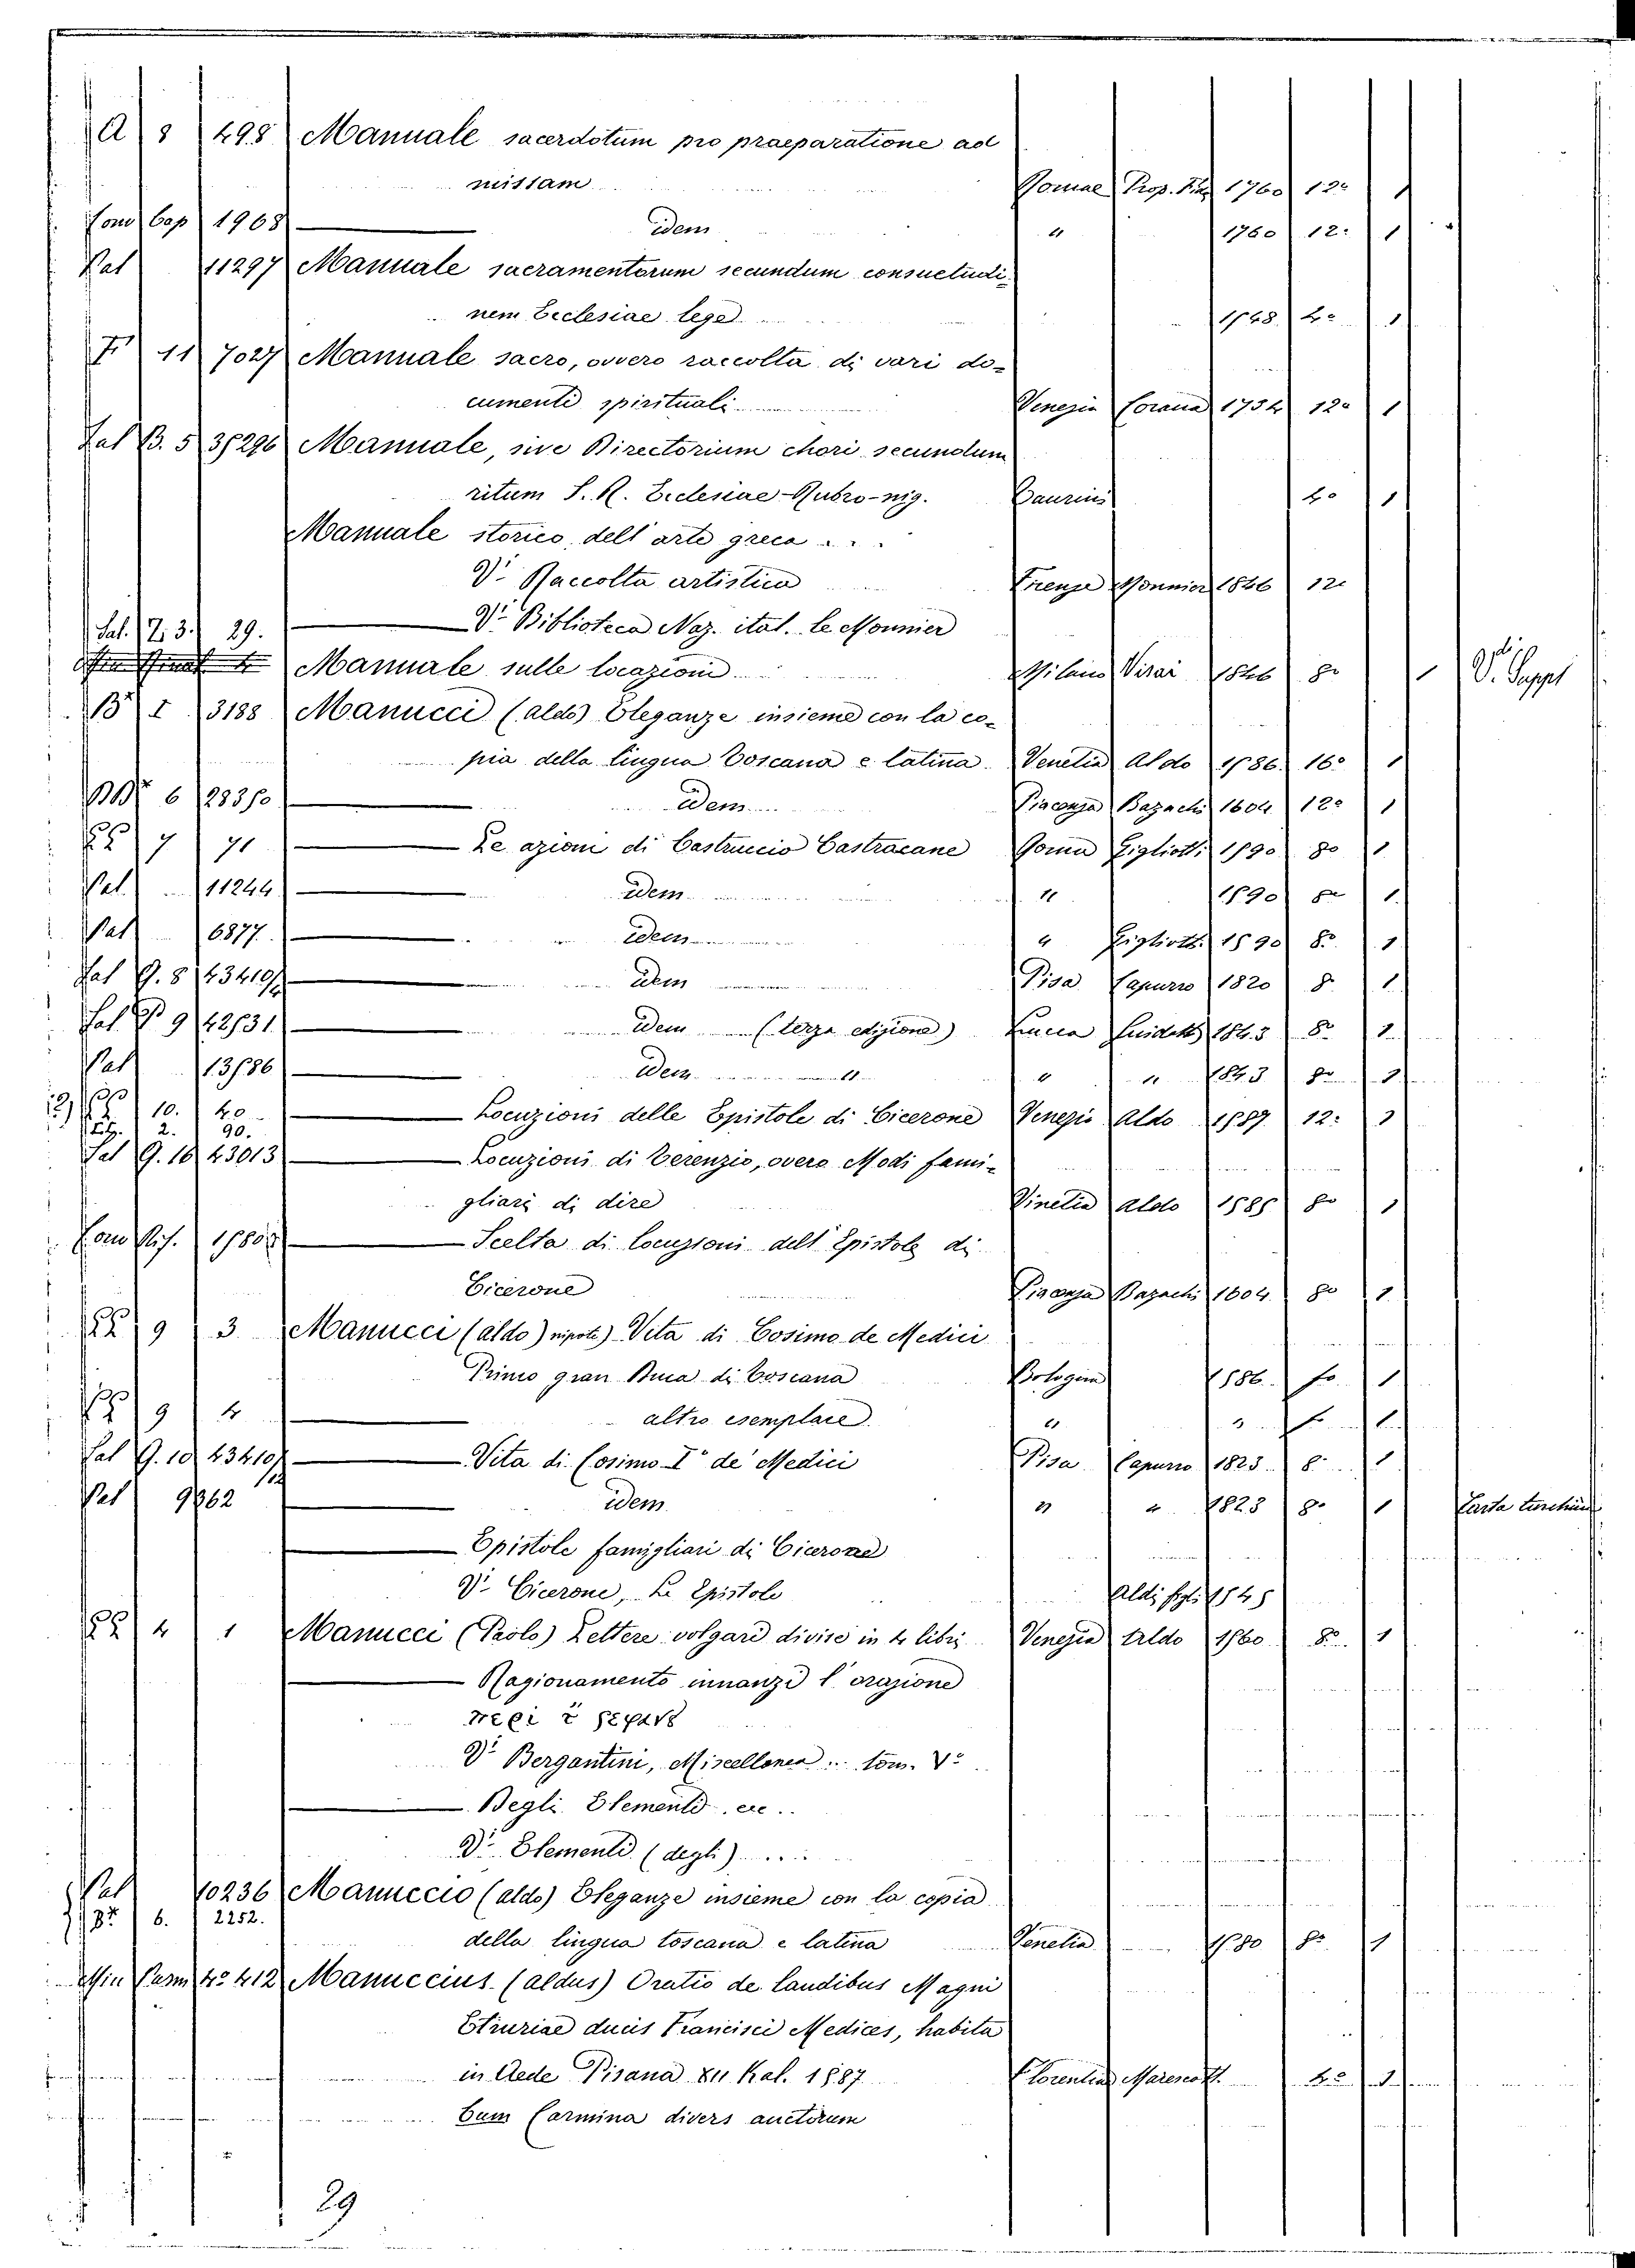 A 8 498 Manuale sacerdotum pro praeparatione ad
missam Romae Prop. Fide 1760 12° 1
Cap 1968 idem " 1760 12° 1
Pal 11297 Manuale sacramentorum secundum consuetudi-
nem Ecclesiae lege 4° 1
F 11 7027 Manuale sacro, ovvero raccolta di vari do-
cumenti spirituali Venezia Corona 1734 12° 1
Sal B. 5 35296 Manuale, sive Directorium chori secundum
ritum S. R. Ecclesiae Rubro-nig. Taurini 4° 1
Manuale storico dell'arte greca ...
V. Raccolta artistica Firenze Monnier 1846 12°
V. Biblioteca Naz. ital. Le Monnier
Sal. 7. 3. 29.
Manuale sulle locazioni Milano Visai 1846 8° 1 V. Suppl
B I 3188 Manucci (Aldo) Eleganze insieme con la co-
pia della lingua Toscana e latina Venetia Aldo 1586 16° 1
6 28350 Idem Piacenza Bazachi 1604 12° 1
7 71 Le azioni di Castruccio Castracane Roma Gigliotti 1590 8° 1
Pal. 11244 idem " 1590 8° 1
Pal 6877 idem " Gigliotti 1590 8° 1
Sal G. 8 43410/4 idem Pisa Capurro 1820 8° 1
Sal 9 42531 Idem (terza edizione) Lucca Guidotti 1843 8° 1
Pal 13586 Idem " " " 1843 8° 1
10. 40 Locuzioni delle Epistole di Cicerone Venezia Aldo 1587 12° 1
2. 90.
Sal G. 10 43013 Locuzioni di Terenzio, overo Modi fami-
gliari di dire Vinetia Aldo 1585 8° 1
Scelta di locuzioni dell' Epistole di
Cicerone Piacenza Bazachi 1604 8° 1
9 3 Manucci (Aldo) nipote) Vita di Cosimo de Medici
Primo gran Duca di Toscana Bologna 1586 fo 1
9 4 altro esemplare " " fo 1
Sal G. 10 43410/12 Vita di Cosimo I° de' Medici Pisa Capurro 1823 8° 1
Pal 9862 idem " " 1823 8° 1 Carta turchina
Epistole famigliari di Cicerone
V. Cicerone, Le Epistole Aldi figli 1545
4 1 Manucci (Paolo) Lettere volgari divise in 4 libri Venezia Aldo 1560 8° 1
Ragionamento innanzi l'orazione
V. Bergantini, Miscellanea .. tom. V°
Degli Elementi ec..
V. Elementi (degli) ....
Pal 10236 Manuccio (Aldo) Eleganze insieme con la copia
6. 2252.
della lingua toscana e latina Venetia 1580 8° 1
4° 412 Manuccius (Aldus) Oratio de laudibus Magni
Etruriae ducis Francisci Medices, habita
in Aede Pisana XII Kal. 1587 Florentiae Marescott. 4° 1
Cum Carmina divers auctorum
29